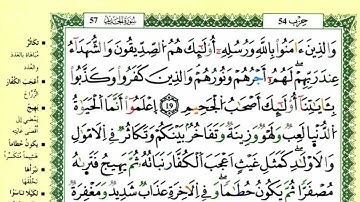 57 سورة الحديد حزب 54
وَالذِينَ ءَامَنُواْ بِاللَّهِ وَرُسُلِهِۦٓ أُوْلَٰٓئِكَ هُمُ الصِّدِّيقُونَ وَالشُّهَدَآءُ
عِندَ رَبِّهِمْ لَهُمُۥٓ أَجْرُهُمْ وَنُورُهُمْ وَالذِينَ كَفَرُواْ وَكَذَّبُواْ
بِـَٔايَٰتِنَآ أُوْلَٰٓئِكَ أَصْحَٰبُ الْجَحِيمِ إِعْلَمُوٓاْ أَنَّمَا الْحَيَوٰةُ
الدُّنْيَا لَعِبٌ وَلَهْوٌ وَزِينَةٌ وَتَفَاخُرٌ بَيْنَكُمْ وَتَكَاثُرٌ فِے الْأَمْوَٰلِ
وَالْأَوْلَٰدِ كَمَثَلِ غَيْثٍ أَعْجَبَ الْكُفَّارَ نَبَاتُهُۥ ثُمَّ يَهِيجُ فَتَر۪يٰهُ
مُصْفَرّاً ثُمَّ يَكُونُ حُطَٰماً وَفِے الْأَخِرَةِ عَذَابٌ شَدِيدٌ وَمَغْفِرَةٌ
تكاثر
مباهاة بالعدد
والعدد
أعجب الكفار
الزراع
يهيج
يكون حطاما